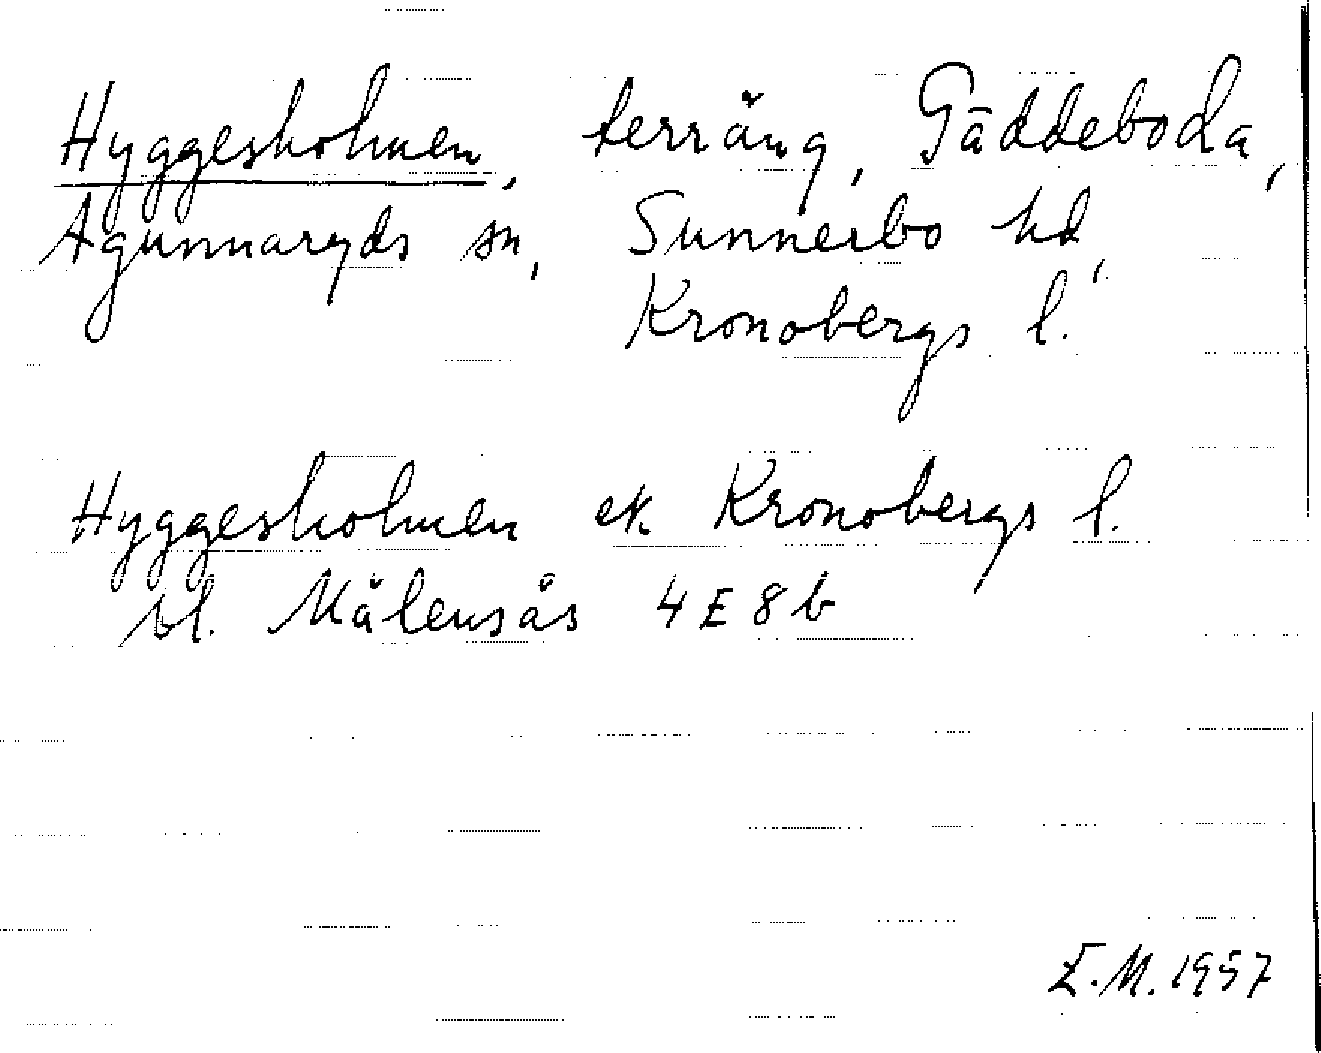 Hyggesholmen, terräng, Gäddeboda,
Agunnaryds sn, Sunnerbo hd,
Kronobergs l.
Hyggesholmen ek Kronobergs l.
bl. Målensås 4E8b
E.M. 1957